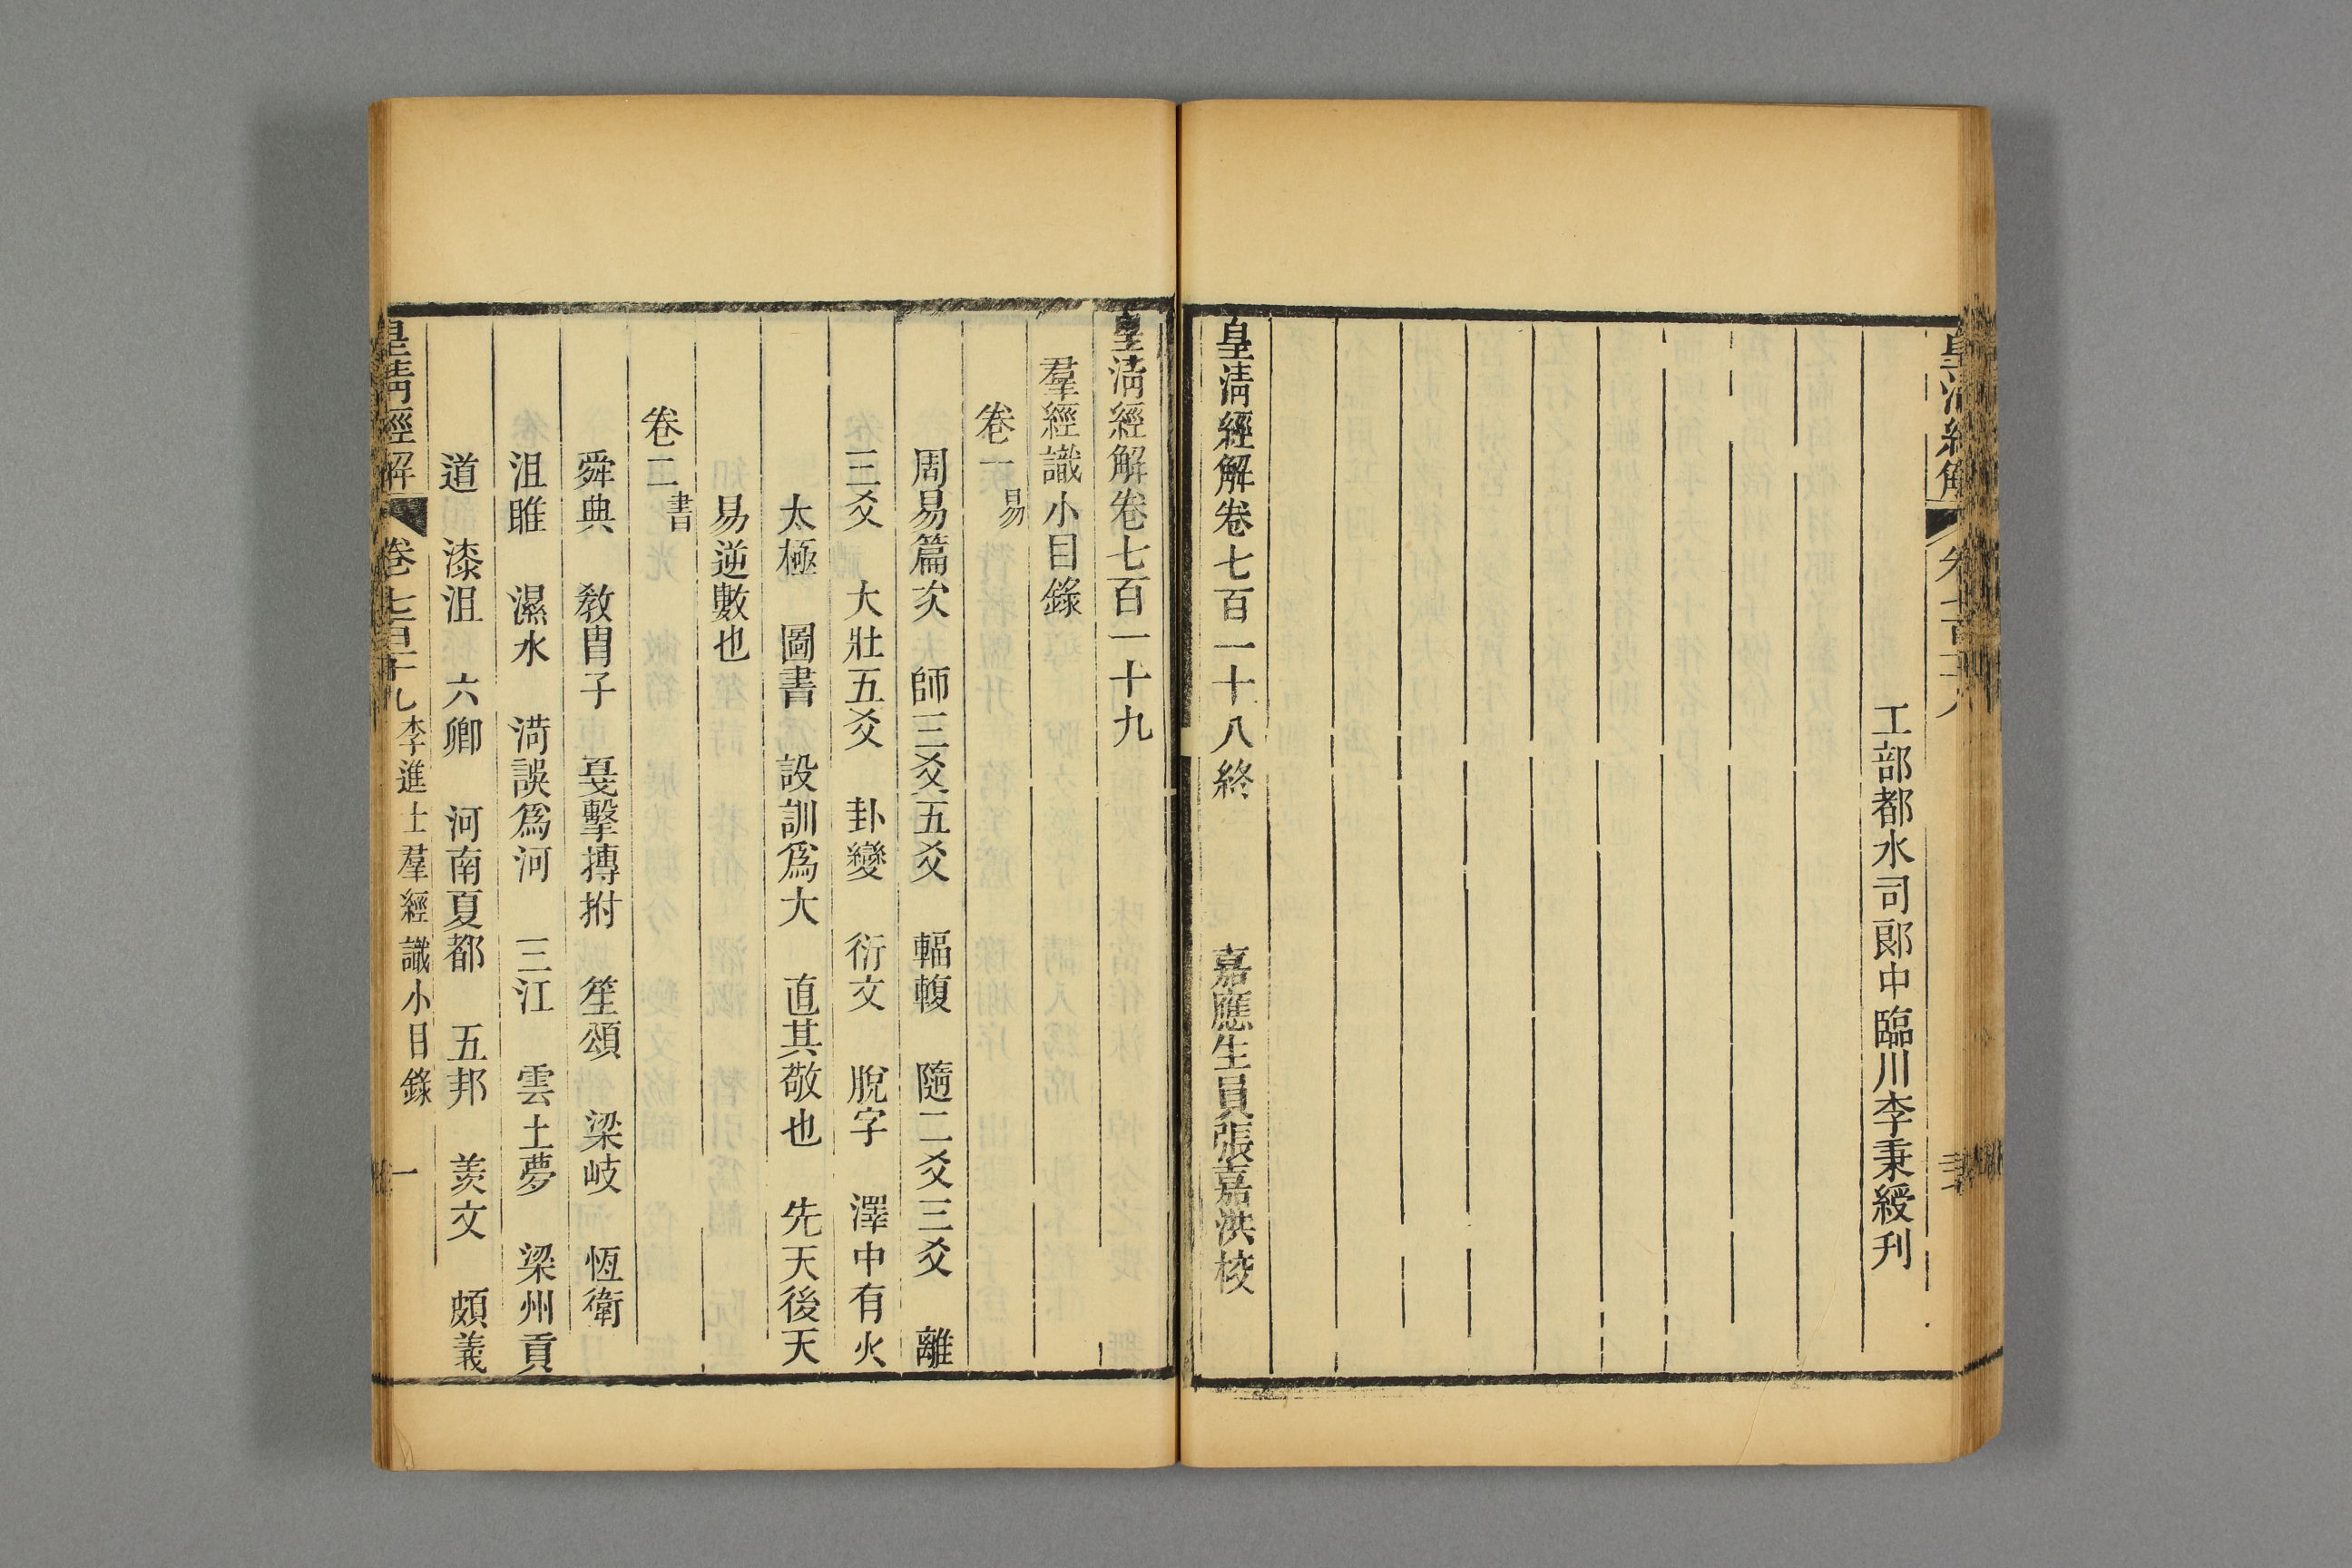 工部都水司郞中臨川李秉綬刋
皇淸經解卷七百一十八終　嘉應生員張嘉洪校
皇淸經解卷七百一十九
羣經識小目錄
卷一 易
周易篇次　師三爻五爻　輻輹　隨二爻三爻　離
三爻　大壯五爻　卦變　衍文　脫字　澤中有火
太極　圖書　設訓爲大　直其敬也　先天後天
易逆數也
卷二 書
舜典　敎胄子　戛擊搏拊　笙頌　梁岐　恆衛
沮雎　濕水　菏誤爲河　三江　雲土夢　梁州貢
道　漆沮　六卿　河南夏都　五邦　羨文　頗義
皇淸經解 卷七百十九 李進士羣經識小目錄 一